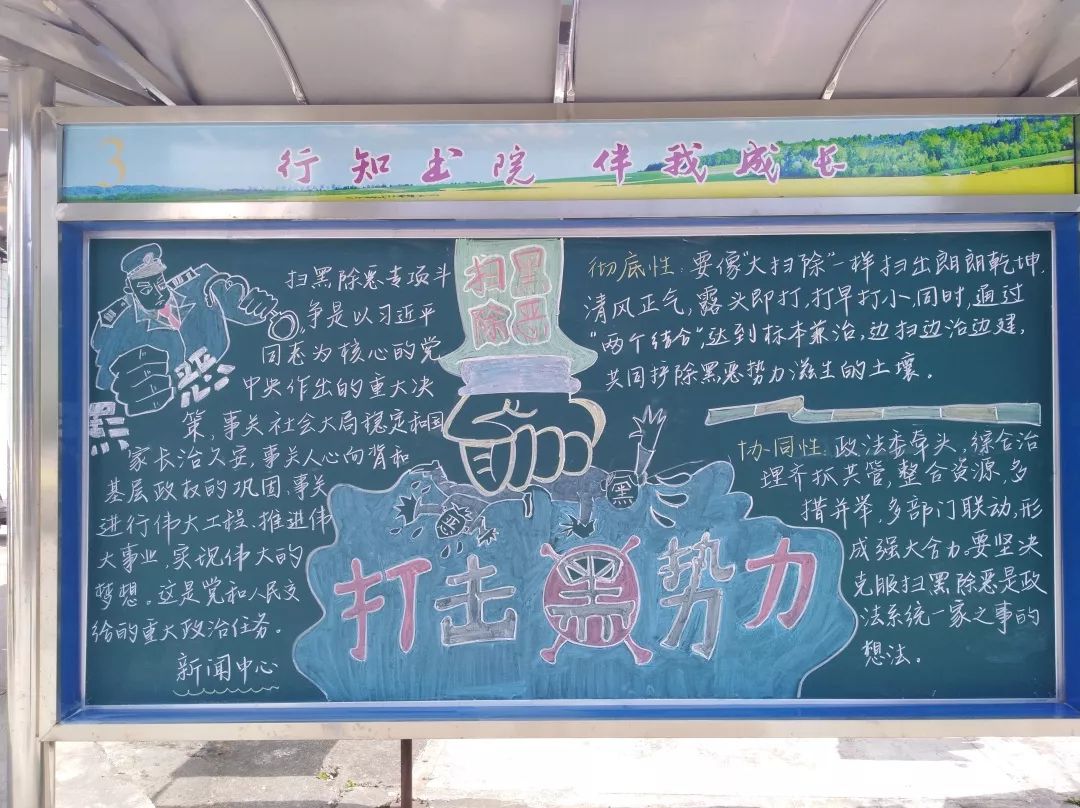 3
行知书院 伴我成长
扫黑除恶专项斗
争是以习近平
同志为核心的党
中央作出的重大决
策,事关社会大局稳定和国
家长治久安,事关人心向背和
基层政权的巩固,事关
进行伟大工程、推进伟
大事业,实现伟大的
梦想。这是党和人民交
给的重大政治任务。
新闻中心
恶
黑
扫黑
除恶
黑
打击黑势力
彻底性:要像“大扫除”一样扫出朗朗乾坤,
清风正气,露头即打,打早打小,同时,通过
“两个结合”,达到标本兼治,边扫边治边建,
共同铲除黑恶势力滋生的土壤。
协同性:政法委牵头,综合治
理齐抓共管,整合资源,多
措并举,多部门联动,形
成强大合力,要坚决
克服扫黑除恶是政
法系统一家之事的
想法。